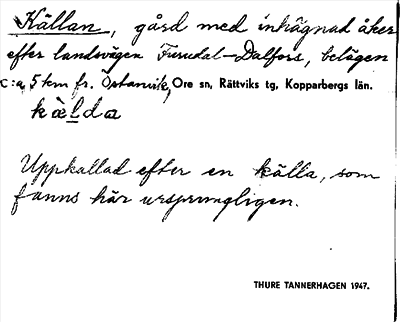 Källan, gård med inhägnad åker
efter landsvägen Furudal-Dalfors, belägen
c:a 5 km fr. Östanvik, Ore sn, Rättviks tg, Kopparbergs län.
kàlda
Uppkallad efter en källa, som
fanns här ursprungligen.
THURE TANNERHAGEN 1947.